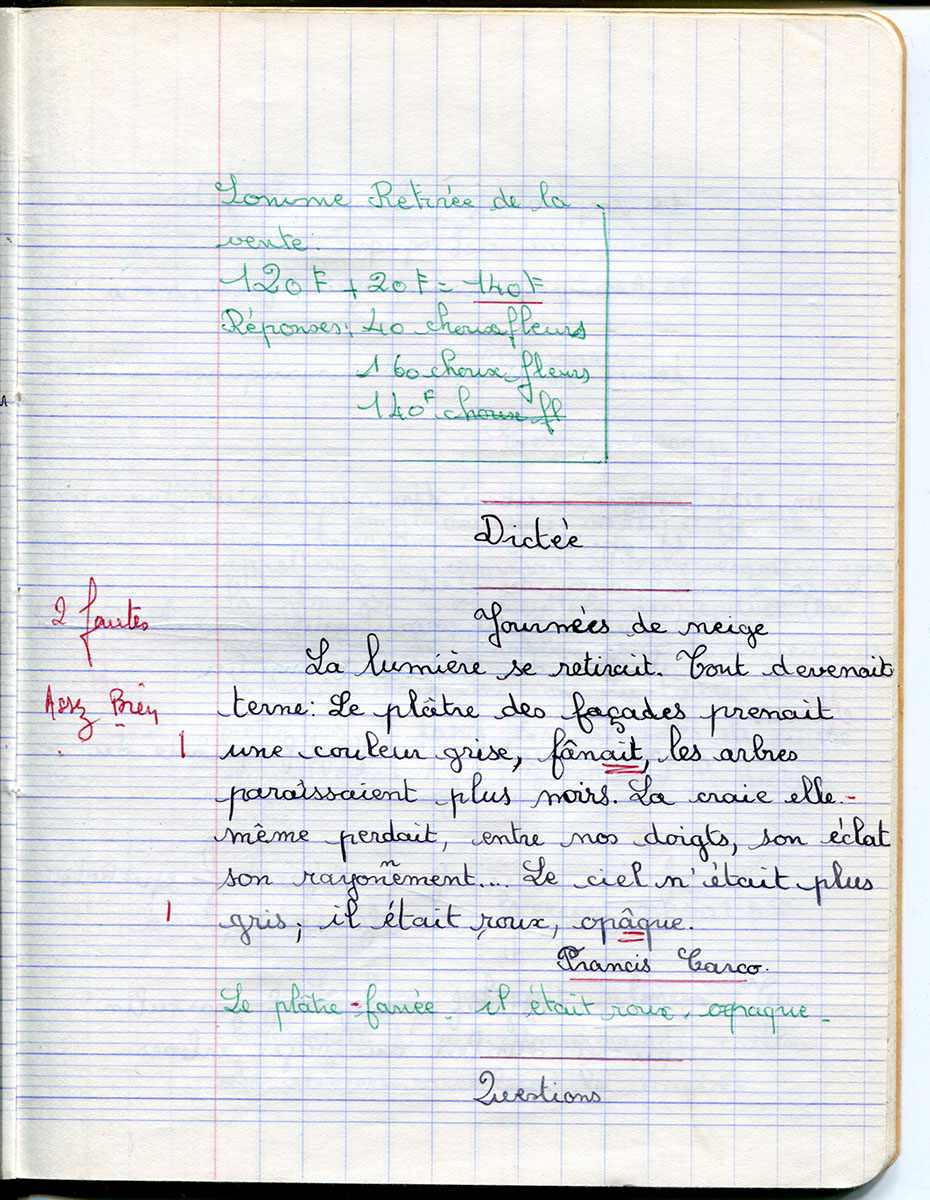 Somme Retirée de la
vente:
120F + 20F = 140F
Réponses: 40 chouxfleurs
160 choux fleurs
140F choux fl
Dictée
2 fautes
Journées de neige
La lumière se retirait. Tout devenait
Assez Bien
terne: Le plâtre des façades prenait
1 une couleur grise, fânait, les arbres
paraîssaient plus noirs. La craie elle-
même perdait, entre nos doigts, son éclat
son rayonnement.... Le ciel n'était plus
1 gris; il était roux, opâque.
Francis Carco.
Le plâtre - fanée. il était roux, opaque.
Questions